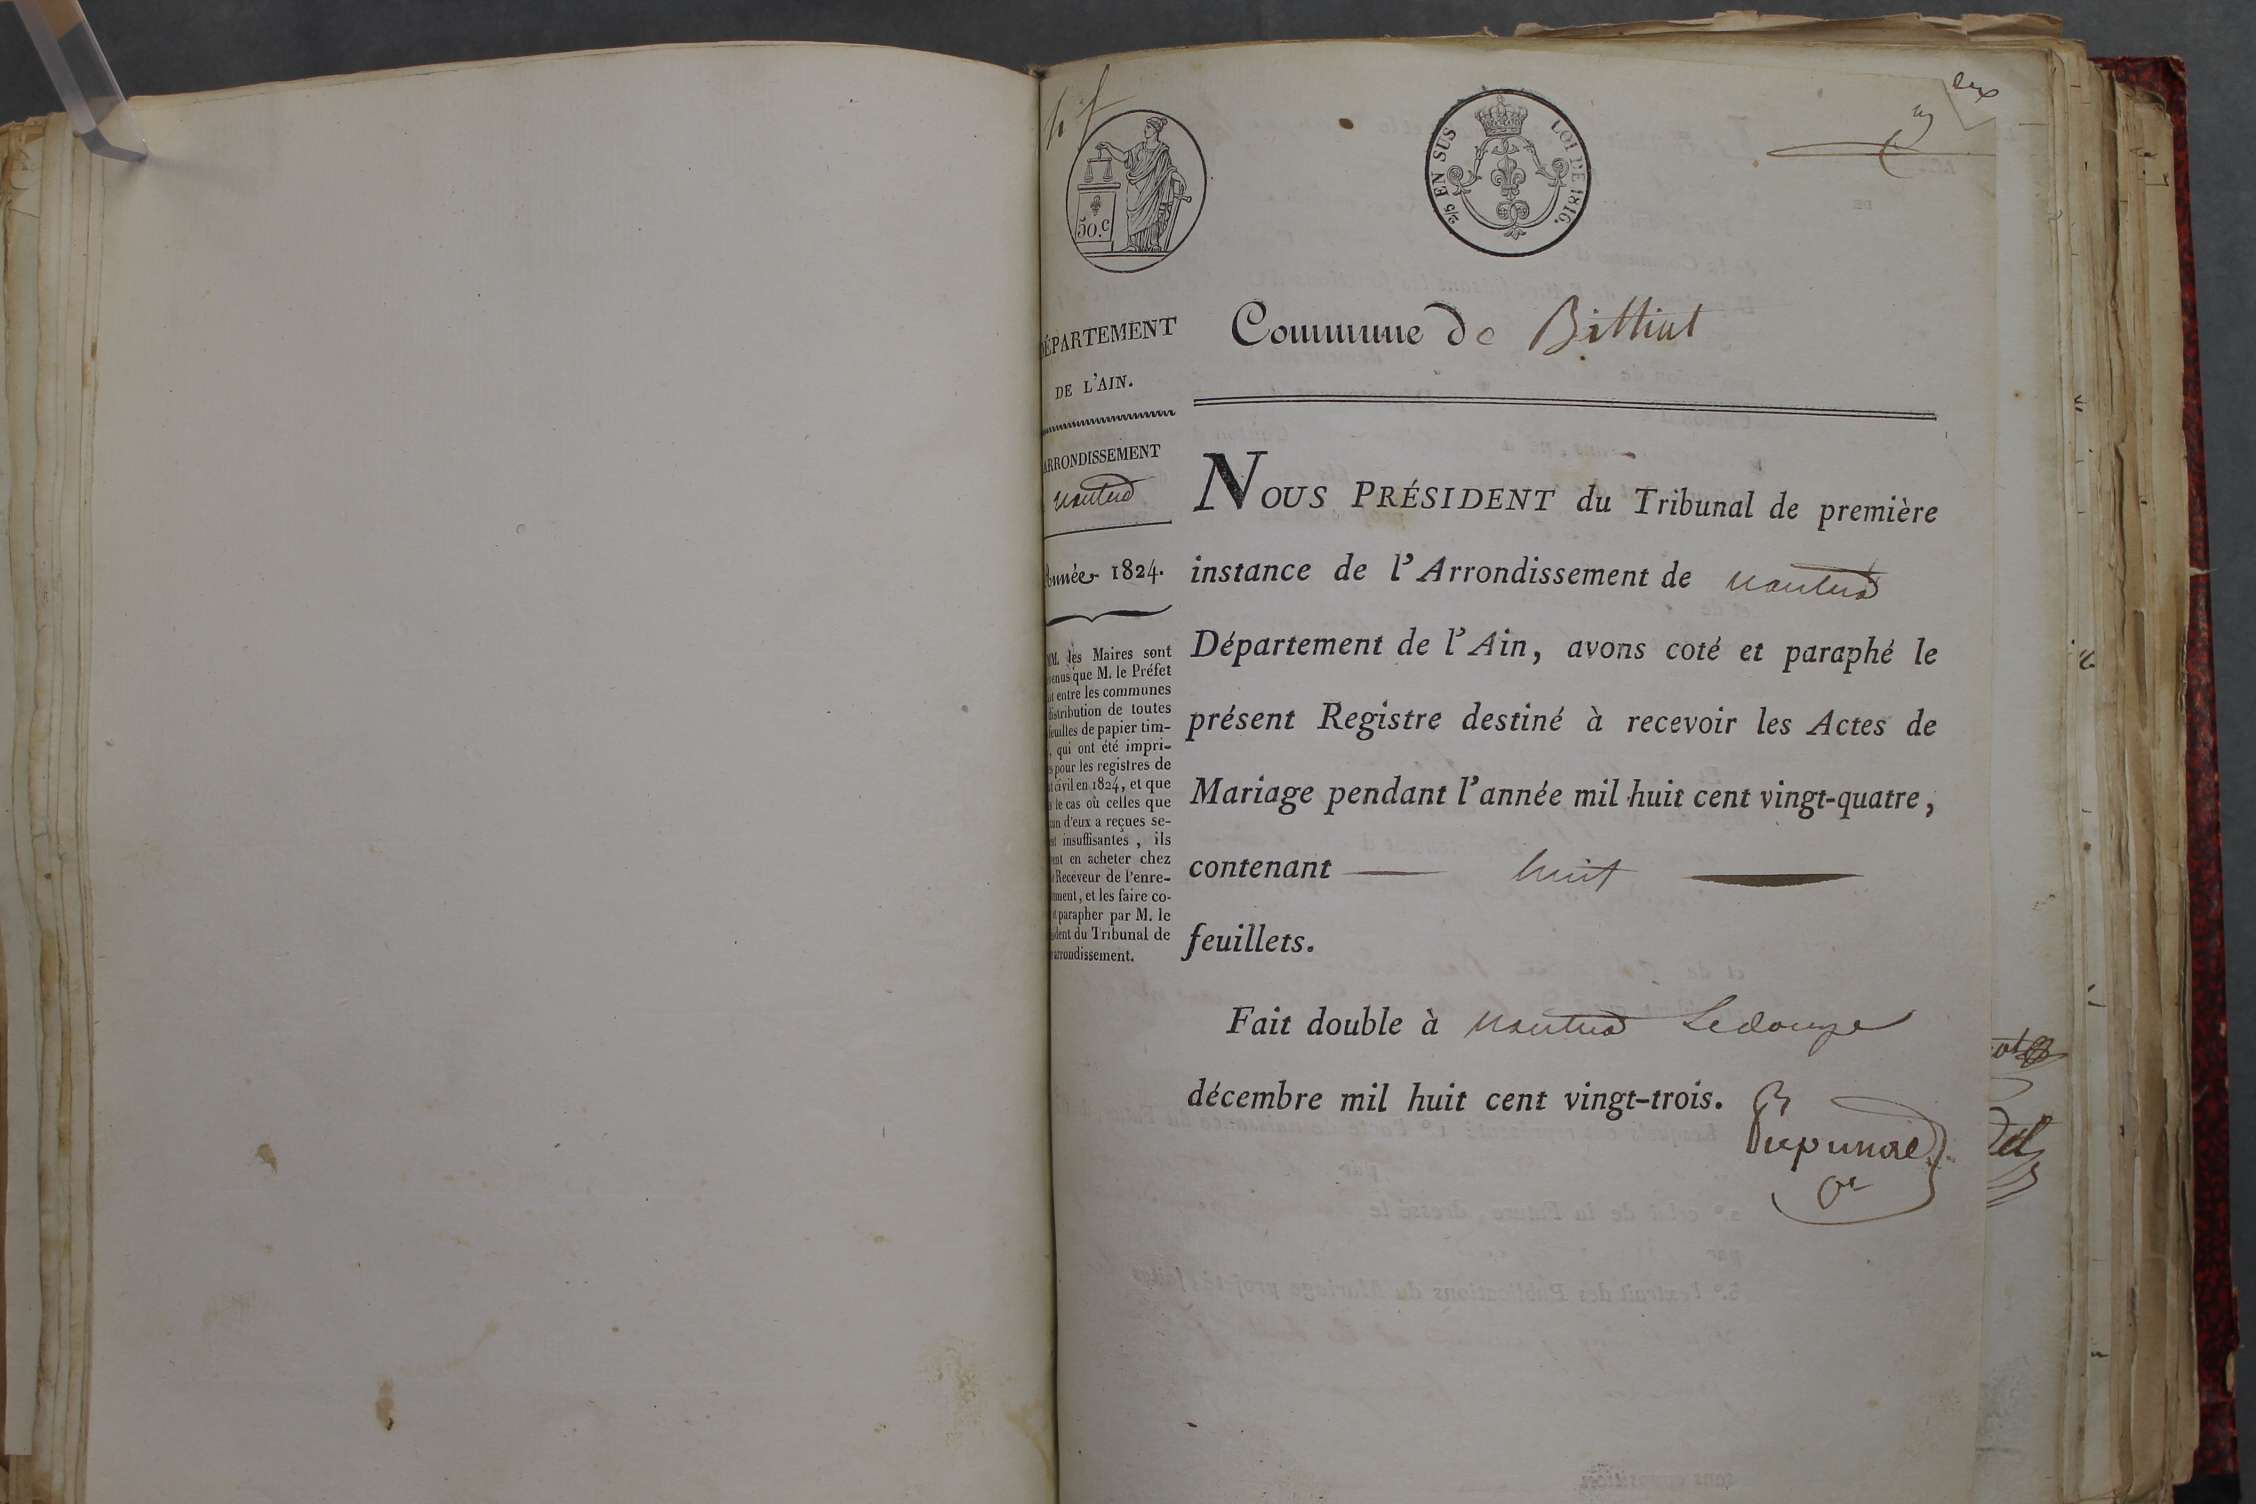 50.c
2/5 EN SUS LOI DE 1816.
DÉPARTEMENT
DE L'AIN.
ARRONDISSEMENT
nantua
Année 1824.
MM. les Maires sont
venus que M. le Préfet
entre les communes
distribution de toutes
feuilles de papier tim-
, qui ont été impri-
pour les registres de
civil en 1824, et que
le cas où celles que
d'eux a reçues se-
insuffisantes, ils
en acheter chez
Receveur de l'enre-
, et les faire co-
parapher par M. le
du Tribunal de
arrondissement.
Commune de Billiat
NOUS PRÉSIDENT du Tribunal de première
instance de l'Arrondissement de nantua
Département de l'Ain, avons coté et paraphé le
présent Registre destiné à recevoir les Actes de
Mariage pendant l'année mil huit cent vingt-quatre,
contenant — huit —
feuillets.
Fait double à nantua Le douze
décembre mil huit cent vingt-trois.